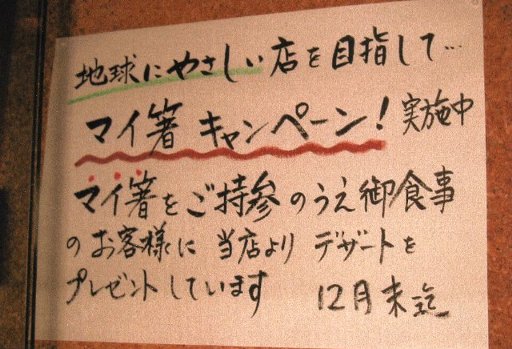 地球にやさしい店を目指して…
マイ箸キャンペーン！実施中
マイ箸をご持参のうえ御食事
のお客様に 当店より デザートを
プレゼントしています 12月末迄